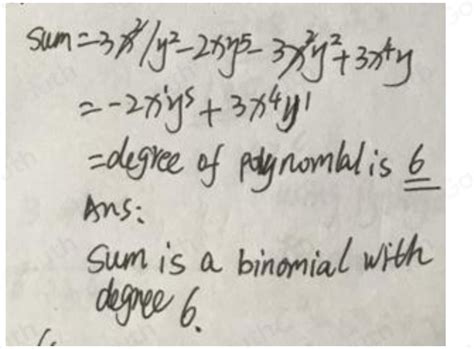 Sum = 3x²y² - 2xy⁵ - 3x²y² + 3x⁴y
= -2x¹y⁵ + 3x⁴y¹
= degree of polynomial is 6
Ans:
Sum is a binomial with
degree 6.